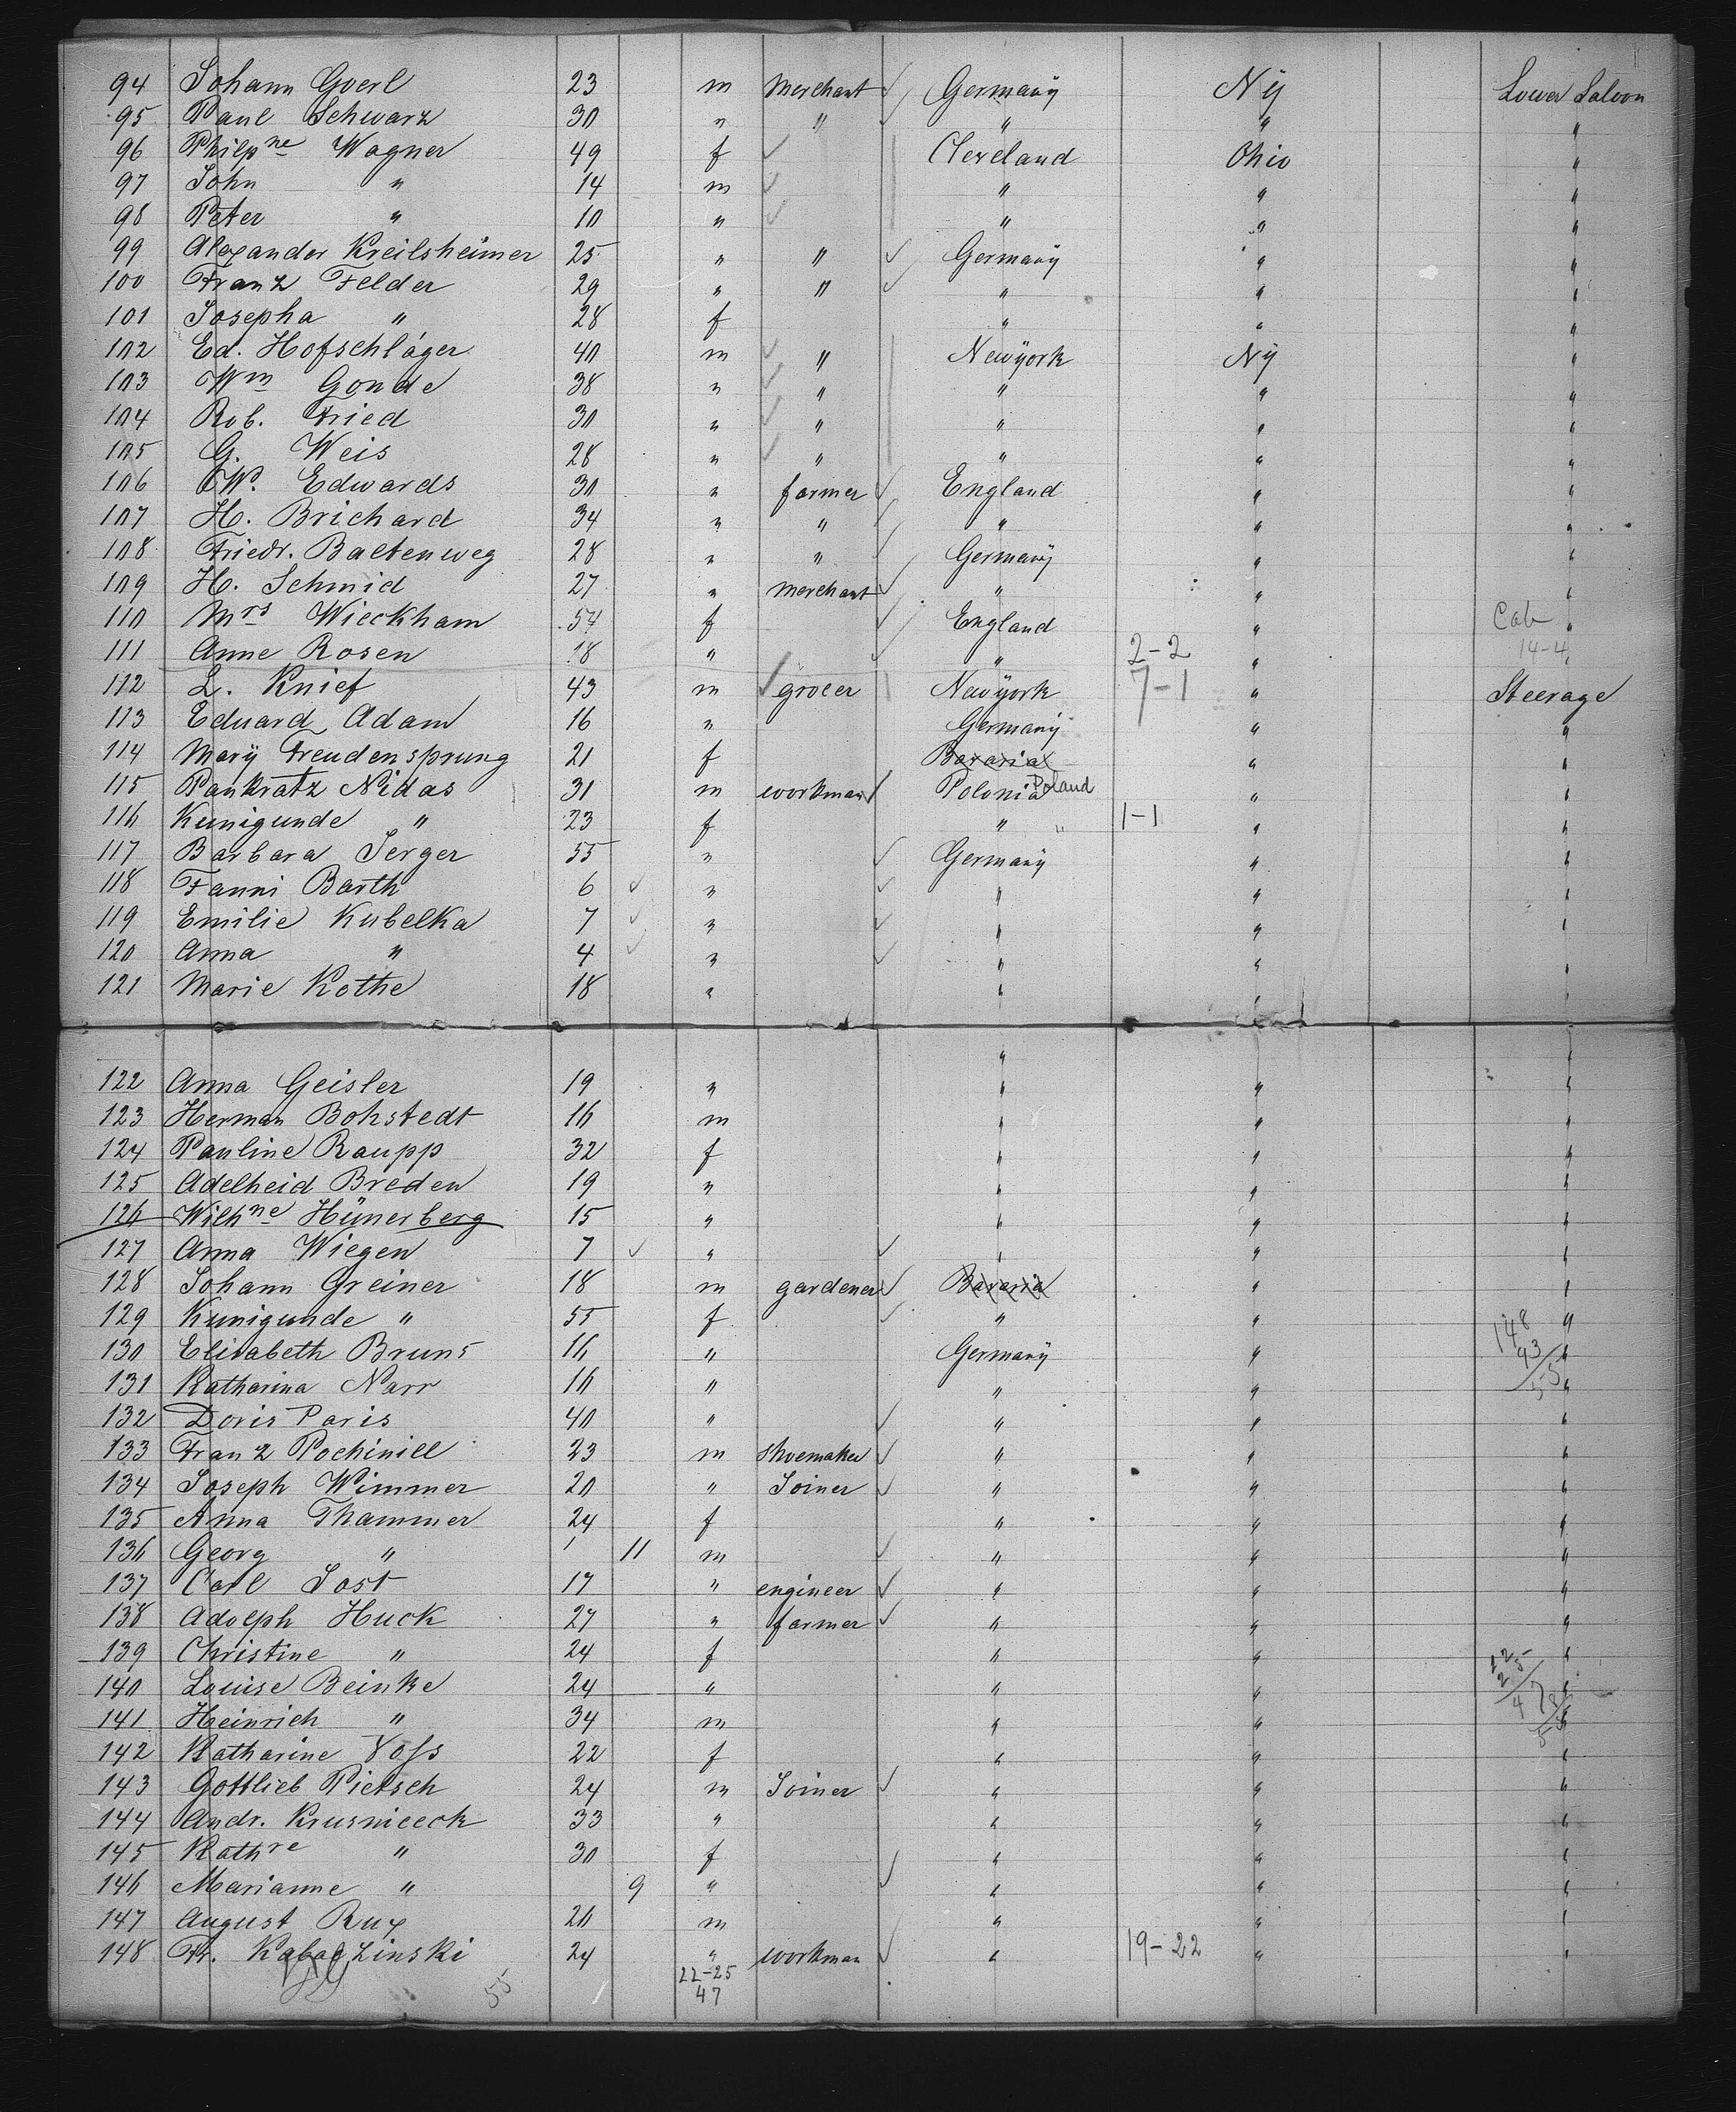 94 Johann Goerl 23 m merchant ✓ Germany Ny Lower Saloon
95 Paul Schwarz 30 " " ✓ " " "
96 Philipne Wagner 49 f ✓ Cleveland Ohio "
97 John " 14 m ✓ " " "
98 Peter " 10 " ✓ " " "
99 Alexander Kreilsheimer 25 " " ✓ Germany " "
100 Franz Felder 29 " " ✓ " " "
101 Josepha " 28 f " " "
102 Ed. Hofschläger 40 m ✓ " Newyork Ny "
103 Wm Gonde 38 " ✓ " " " "
104 Rob. Fried 30 " ✓ " " " "
105 G. Weis 28 " ✓ " " " "
106 W. Edwards 30 " farmer ✓ England " "
107 H. Brichard 34 " " ✓ " " "
108 Friedr. Baltenweg 28 " " ✓ Germany " "
109 H. Schmid 27 " merchant ✓ " " "
110 Mrs Wieckham 54 f ✓ England " Cab "
111 Anne Rosen 18 " ✓ " 2-2 " 14-4
112 L. Knief 43 m ✓ grocer Newyork 7-1 " Steerage
113 Eduard Adam 16 " Germany " "
114 Mary Freudensprung 21 f Bavaria " "
115 Pankratz Nidas 31 m workman ✓ Polonia Poland " "
116 Kunigunde " 23 f " " 1-1 " "
117 Barbara Jerger 55 " ✓ Germany " "
118 Fanni Barth 6 ✓ " ✓ " " "
119 Emilie Kubelka 7 ✓ " ✓ " " "
120 Anna " 4 ✓ " ✓ " " "
121 Marie Kothe 18 " " " "
122 Anna Geisler 19 " " " "
123 Herman Bohstedt 16 m " " "
124 Pauline Raupp 32 f " " "
125 Adelheid Breden 19 " " " "
126 Wilhne Hünerberg 15 " " " "
127 Anna Wiegen 7 ✓ " ✓ " " "
128 Johann Greiner 18 m gardener ✓ Bavaria " "
129 Kunigunde " 55 f ✓ " " "
130 Elisabeth Bruns 16 " Germany " 148 "
131 Katharina Narr 16 " " " 93 55 "
132 Doris Paris 40 " ✓ " " "
133 Franz Pochinill 23 m shoemaker ✓ " " "
134 Joseph Wimmer 20 " Joiner ✓ " " "
135 Anna Thammer 24 f " " "
136 Georg " 11 m ✓ " " "
137 Carl Jost 17 " engineer ✓ " " "
138 Adolph Huck 27 " farmer ✓ " " "
139 Christine " 24 f " " "
140 Louise Beinke 24 " " " "
141 Heinrich " 34 m " " "
142 Katharine Voss 22 f " " "
143 Gottlieb Pietsch 24 m Joiner ✓ " " "
144 Andr. Krusnieeck 33 " " " "
145 Kathre " 30 f " " "
146 Marianne " 9 " ✓ " " "
147 August Rux 20 m " " "
148 Fr. Kabaczinski 24 " workman ✓ " 19-22 " "
55 22-25
47